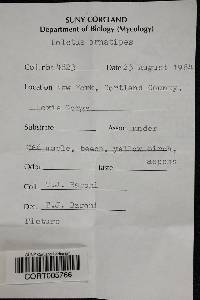 SUNY CORTLAND
Department of Biology (Mycology)
Boletus ornatipes
Col nr. 4823 Date 23 August 1984
Location New York, Cortland County,
Substrate Assoc under
red maple, beech, yellow birch,
aspens
Odor Taste
Col T.J. Baroni
Det T.J. Baroni
Picture
CORT005766